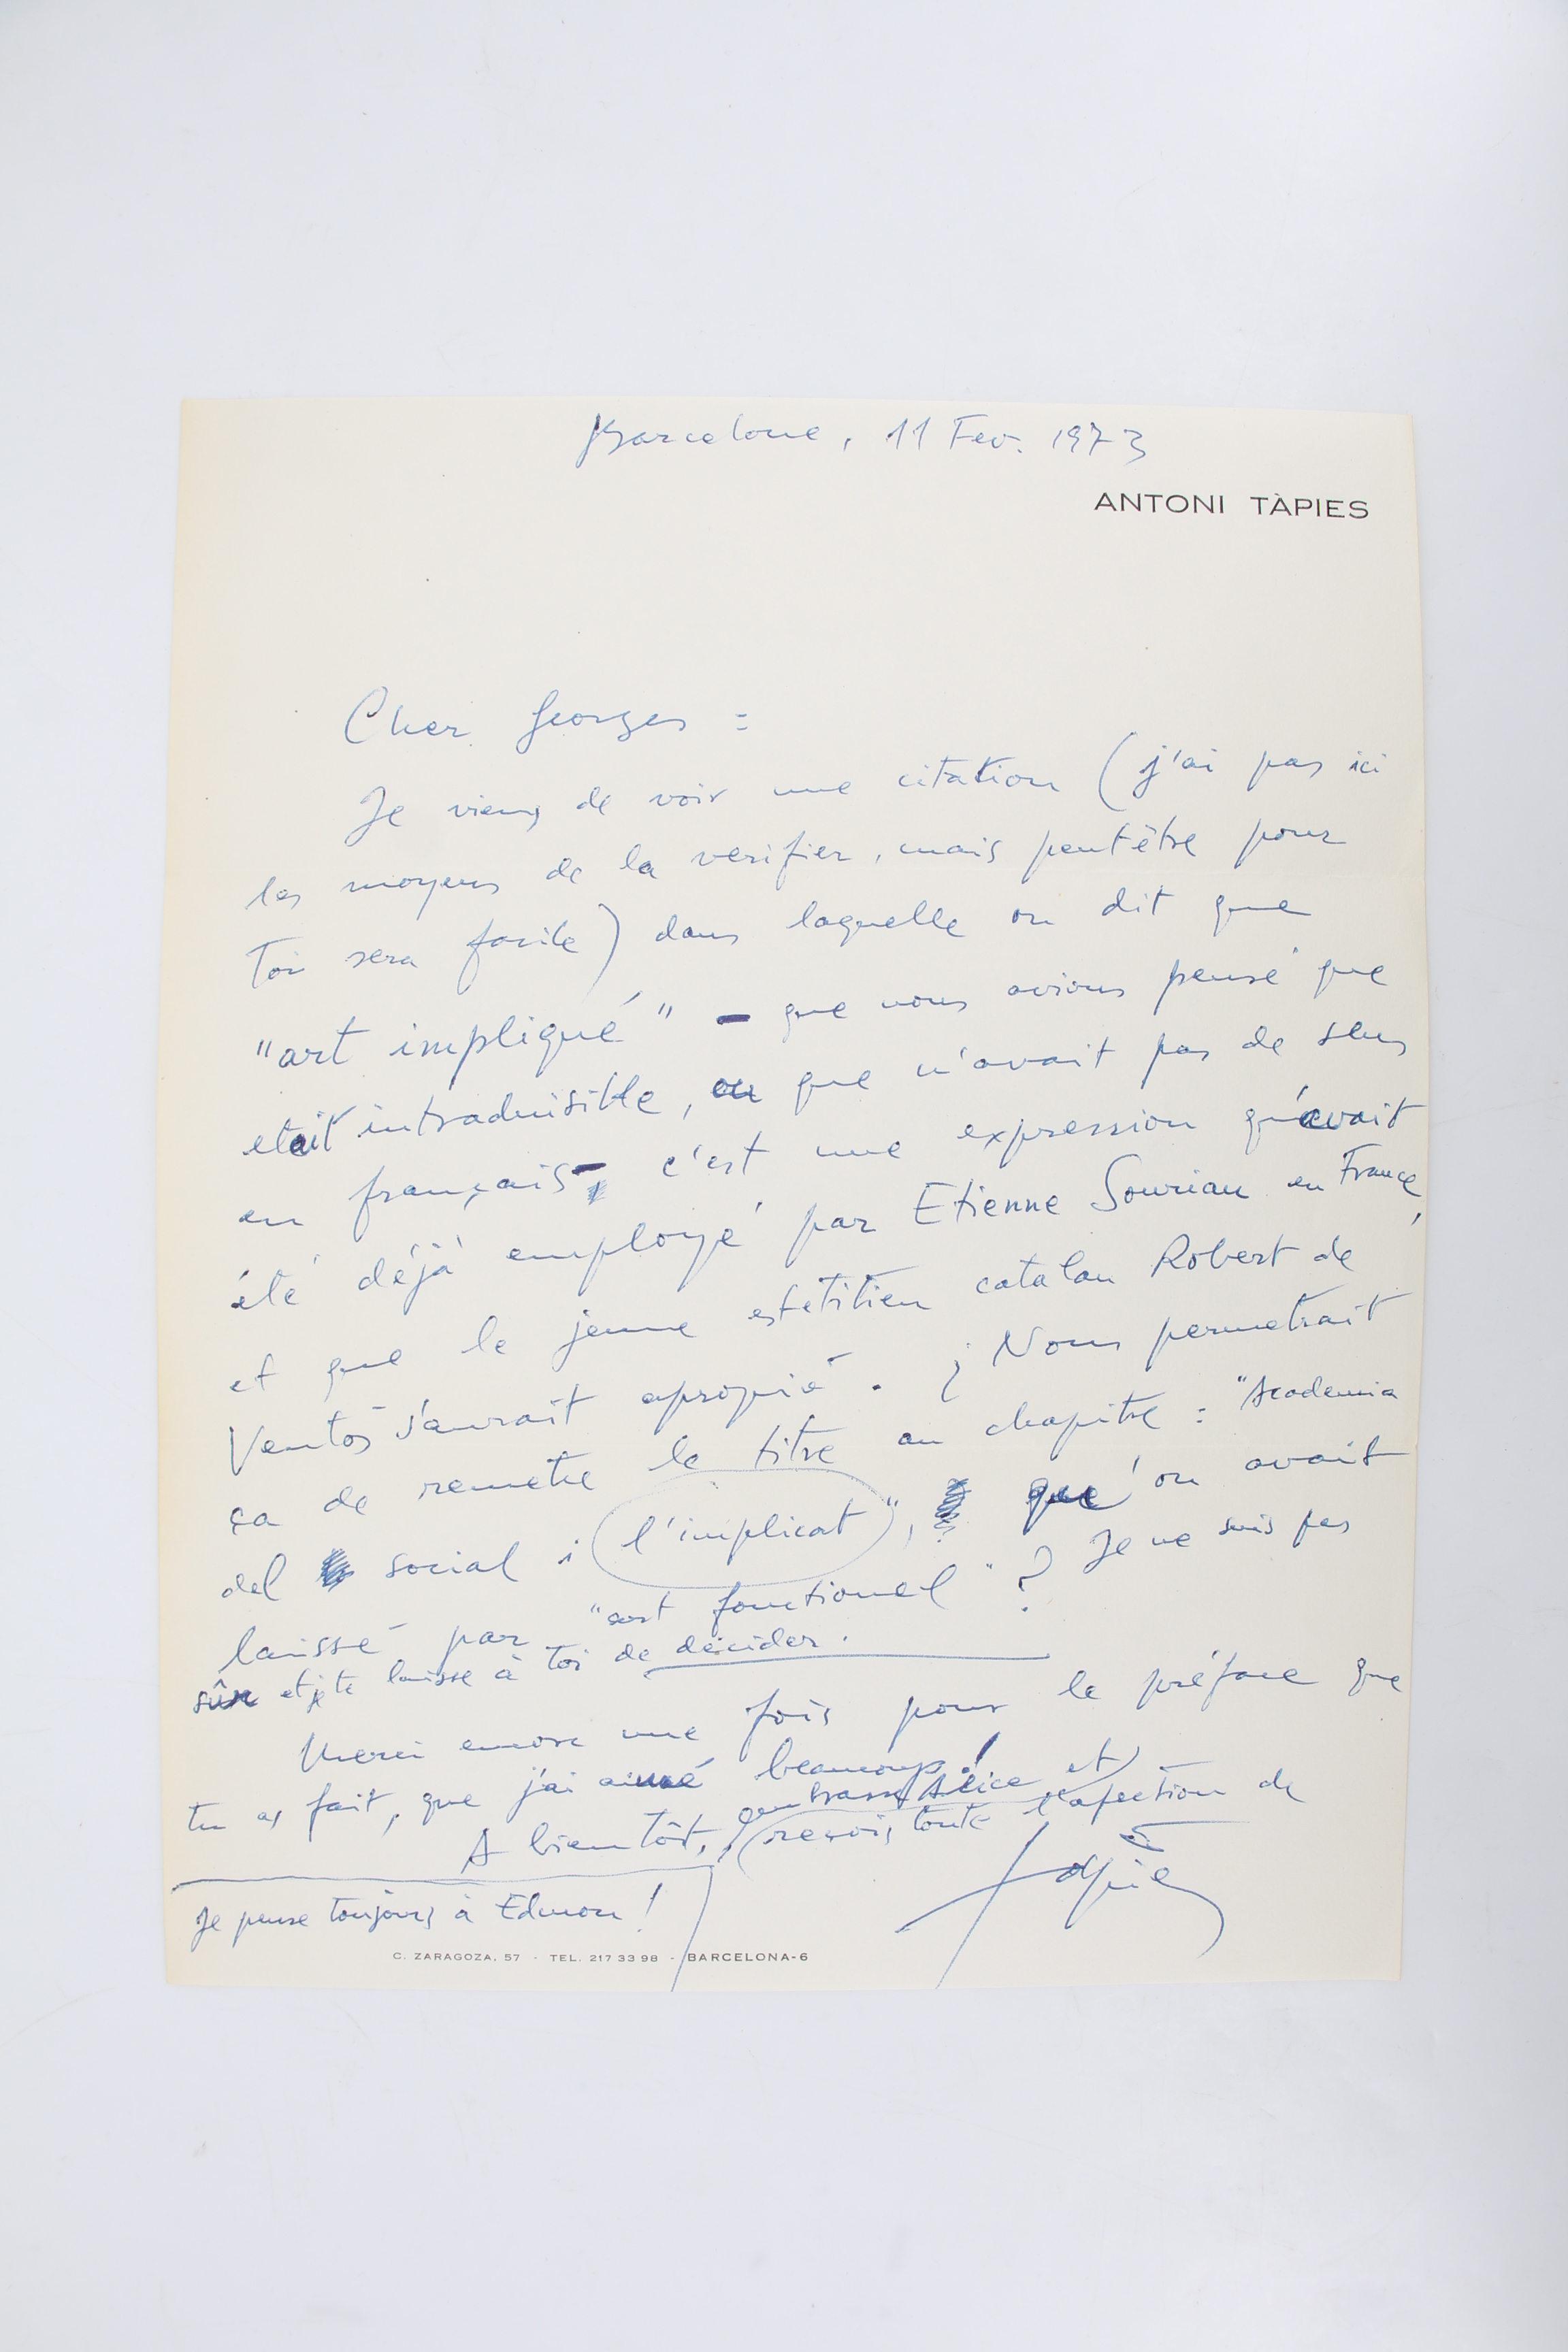 Barcelone, 11 Fev. 1973
ANTONI TÀPIES
Cher Georges :
Je viens de voir une citation (j'ai pas ici
les moyens de la verifier, mais peutêtre pour
toi sera facile) dans laquelle on dit que
"art impliqué" - que nous avions pensé que
etait intraduisible, ou que n'avait pas de sens
en français -, c'est une expression qu'avait
été déjà employé par Etienne Souriau en France,
et que le jeune estetitien catalan Robert de
Ventós s'aurait apropié. ¿ Nous permetrait
ça de remetre le titre au chapitre : "Academia
del social i l'implicat", que on avait
laissé par "art fonctionel" ? Je ne suis pas
sûr et je te laisse à toi de décider.
Merci encore une fois pour le préface que
tu as fait, que j'ai aimé beaucoup !
A bientôt, embrasse Alice et
reçois toute l'afection de
Tàpies
Je pense toujours à Edmon !
C. ZARAGOZA, 57 - TEL. 217 33 98 - BARCELONA-6